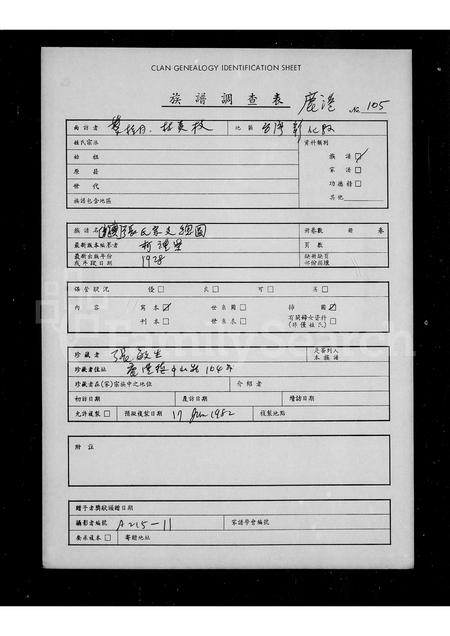 CLAN GENEALOGY IDENTIFICATION SHEET
族譜調查表 鹿港 № 105
面訪者 地區 台灣彰化縣
姓氏宗派 資料類別
始祖 族譜 ☑
原籍 家譜 □
世代 功德譜 □
族譜包含地區 其他
族譜名 張氏家文總圖 冊卷數 冊 卷
最新版本編纂者 頁數
最新出版年份 1928 缺冊缺頁
或年段日期 部份損壞
保管狀況 優 □ 良 □ 可 □ 劣 □
內容 寫本 ☑ 世系圖 □ 掛圖 ☑
刊本 □ 世系表 □ 有關婦女資料
(非僅姓氏) □
珍藏者 張敏生 是否列入
本族譜
珍藏者住址 鹿港鎮中山路104号
珍藏者在(家)宗族中之地位 介紹者
初訪日期 再訪日期 增訪日期
允許複製 □ 預擬複製日期 17 Jun 1982 複製地點
附註
贈予者獎狀頒贈日期
攝影者編號 A215-11 家譜學會編號
要求複本 □ 寄贈地址
FamilySearch